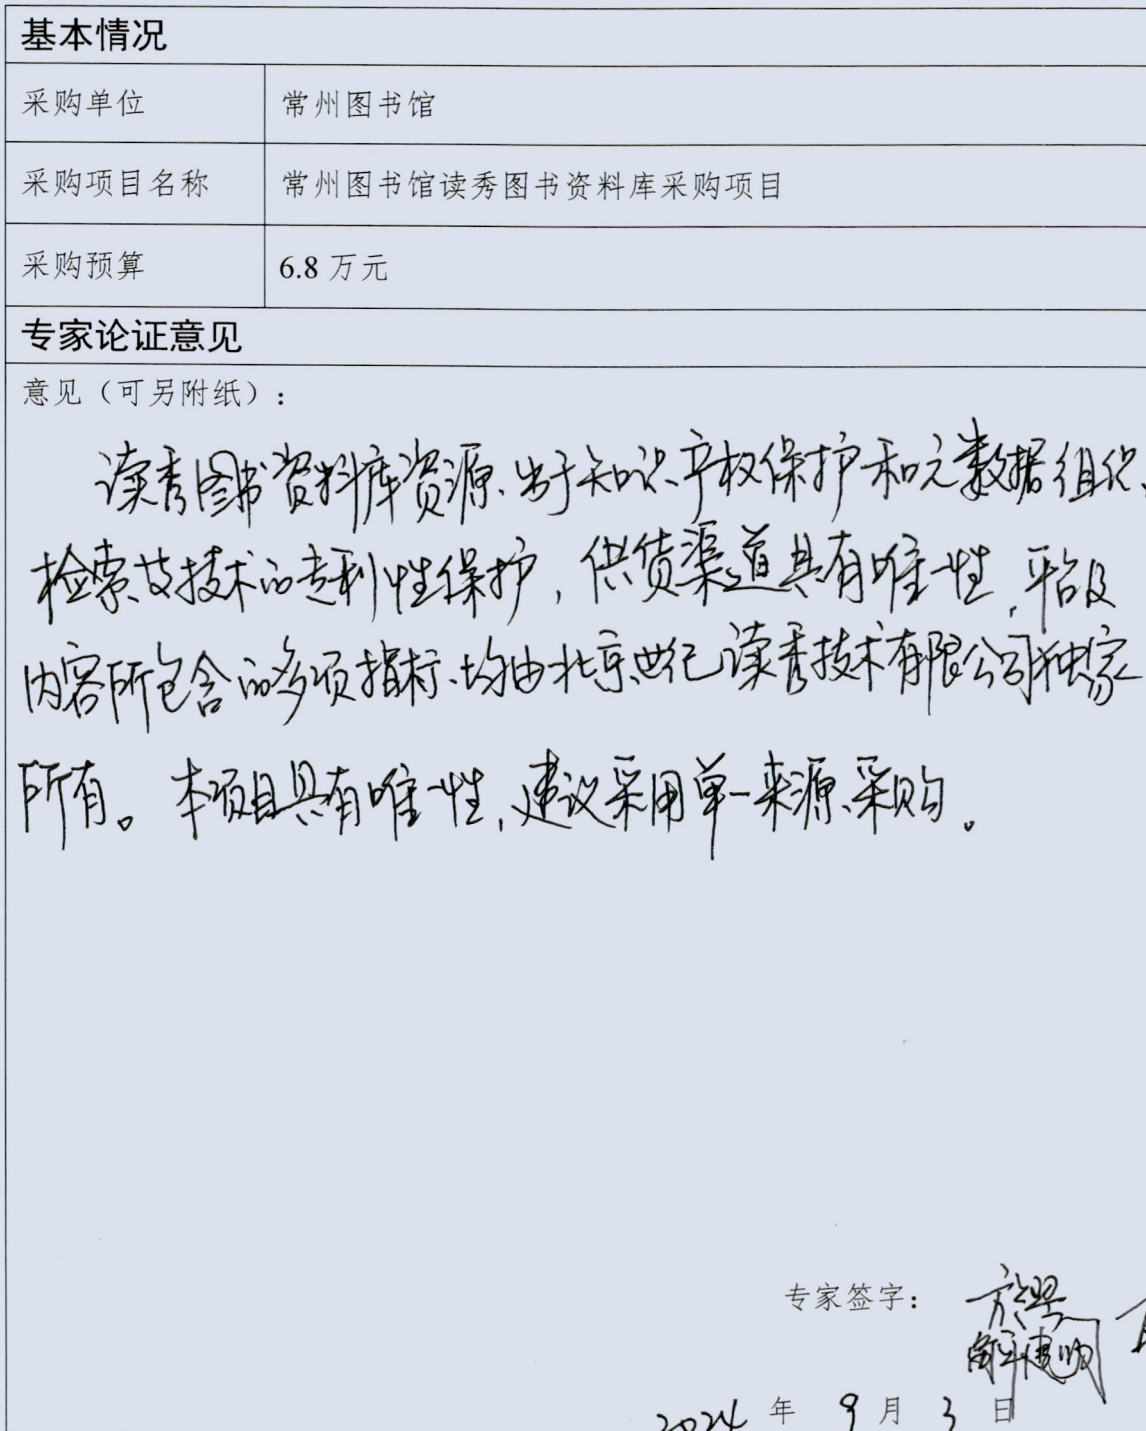 基本情况
采购单位 常州图书馆
采购项目名称 常州图书馆读秀图书资料库采购项目
采购预算 6.8 万元
专家论证意见
意见（可另附纸）：
读秀图书资料库资源、出于知识产权保护和元数据组织、
检索技术的专利性保护，供货渠道具有唯一性，平台及
内容所包含的多项指标、均由北京世纪读秀技术有限公司独家
所有。本项目具有唯一性，建议采用单一来源采购。
专家签字：
2024 年 9 月 3 日